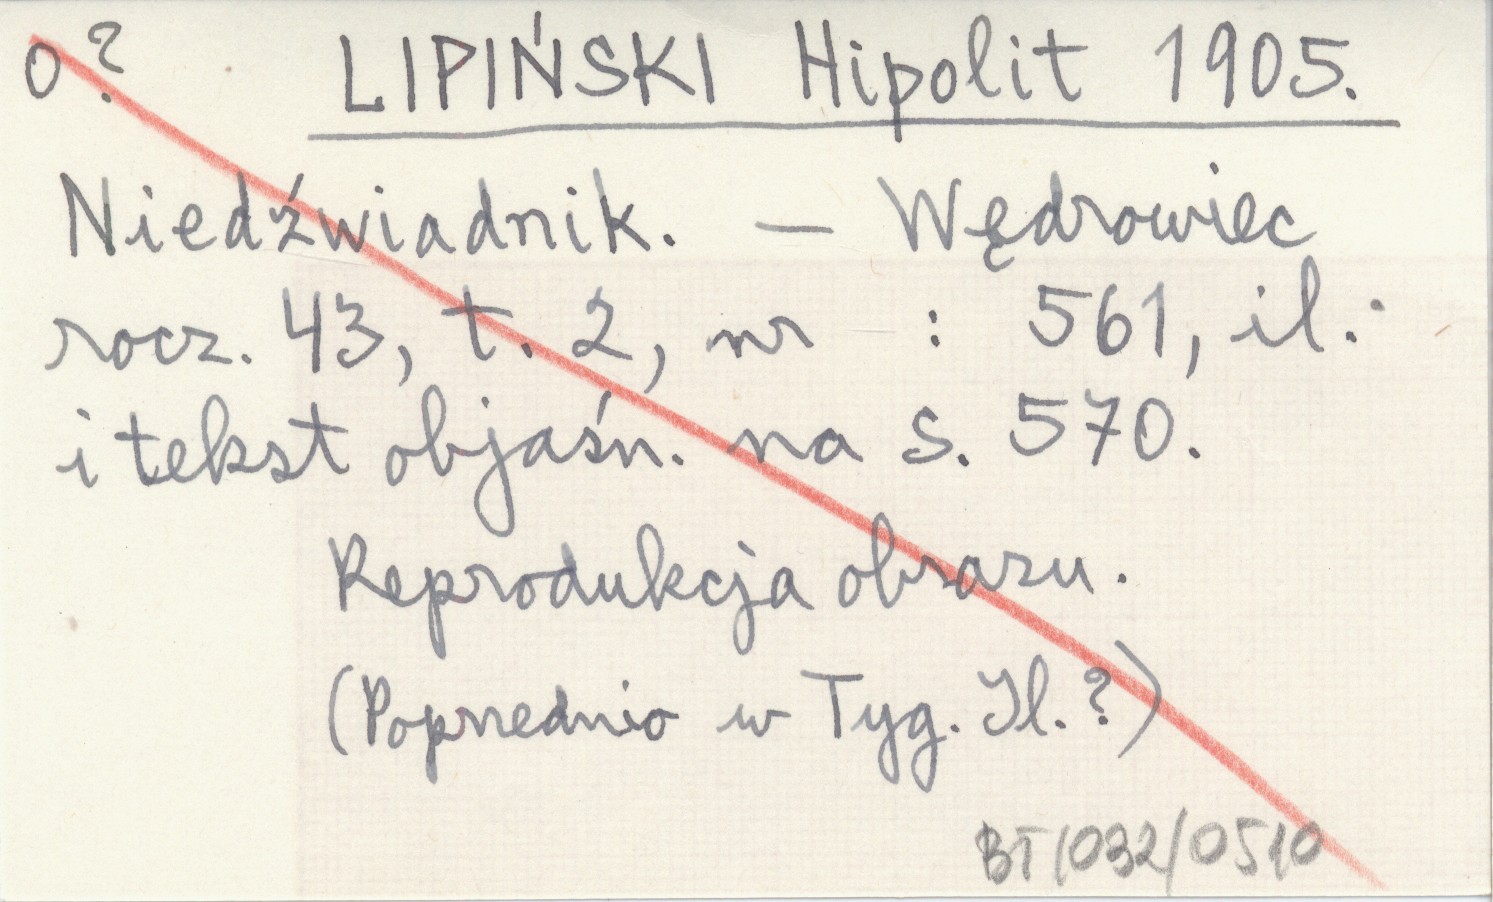 O? LIPIŃSKI Hipolit 1905.
Niedźwiadnik. — Wędrowiec
rocz. 43, t. 2, nr : 561, il.
i tekst objaśn. na s. 570.
Reprodukcja obrazu.
(Poprzednio w Tyg. Il.?)
BT/032/0510